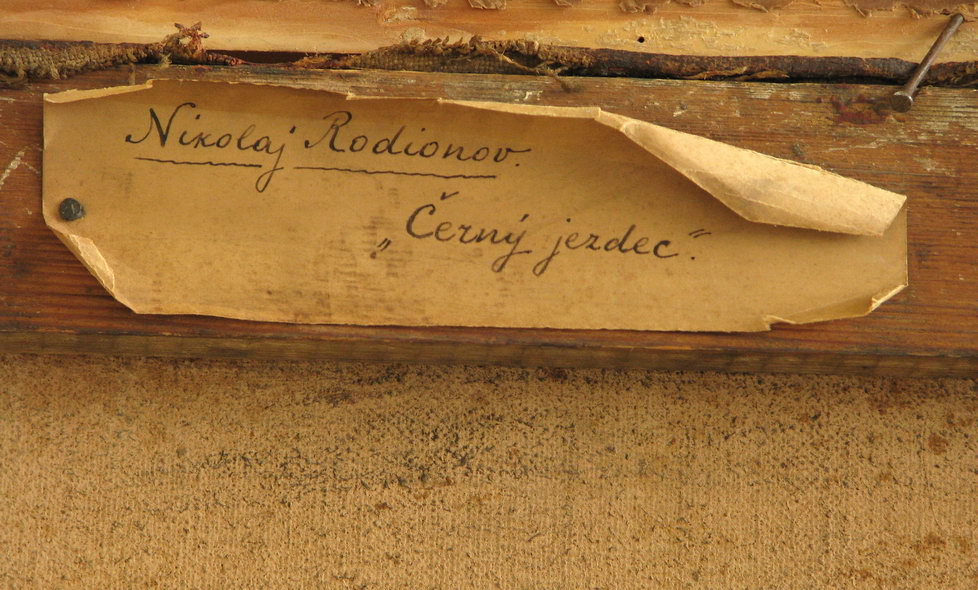 Nikolaj Rodionov.
„Černý jezdec.“